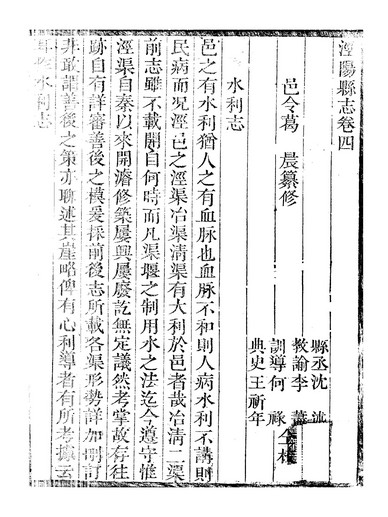 涇陽縣志卷四
邑令葛 晨纂修
縣丞沈
教諭李
訓導何
典史王祈年
水利志
邑之有水利猶人之有血脉也血脉不和則人病水利不講則
民病而況涇邑之涇渠冶渠清渠有大利於邑者哉冶清二渠
前志雖不載開自何時而凡渠堰之制用水之法迄今遵守惟
涇渠自秦以來開濬修築屢興屢廢訖無定議然考掌故存往
跡自有詳審善後之模爰採前後志所載各渠形勢詳加刪訂
非敢謂善後之策亦聊述其崖略俾有心利導者有所考據云
水利志